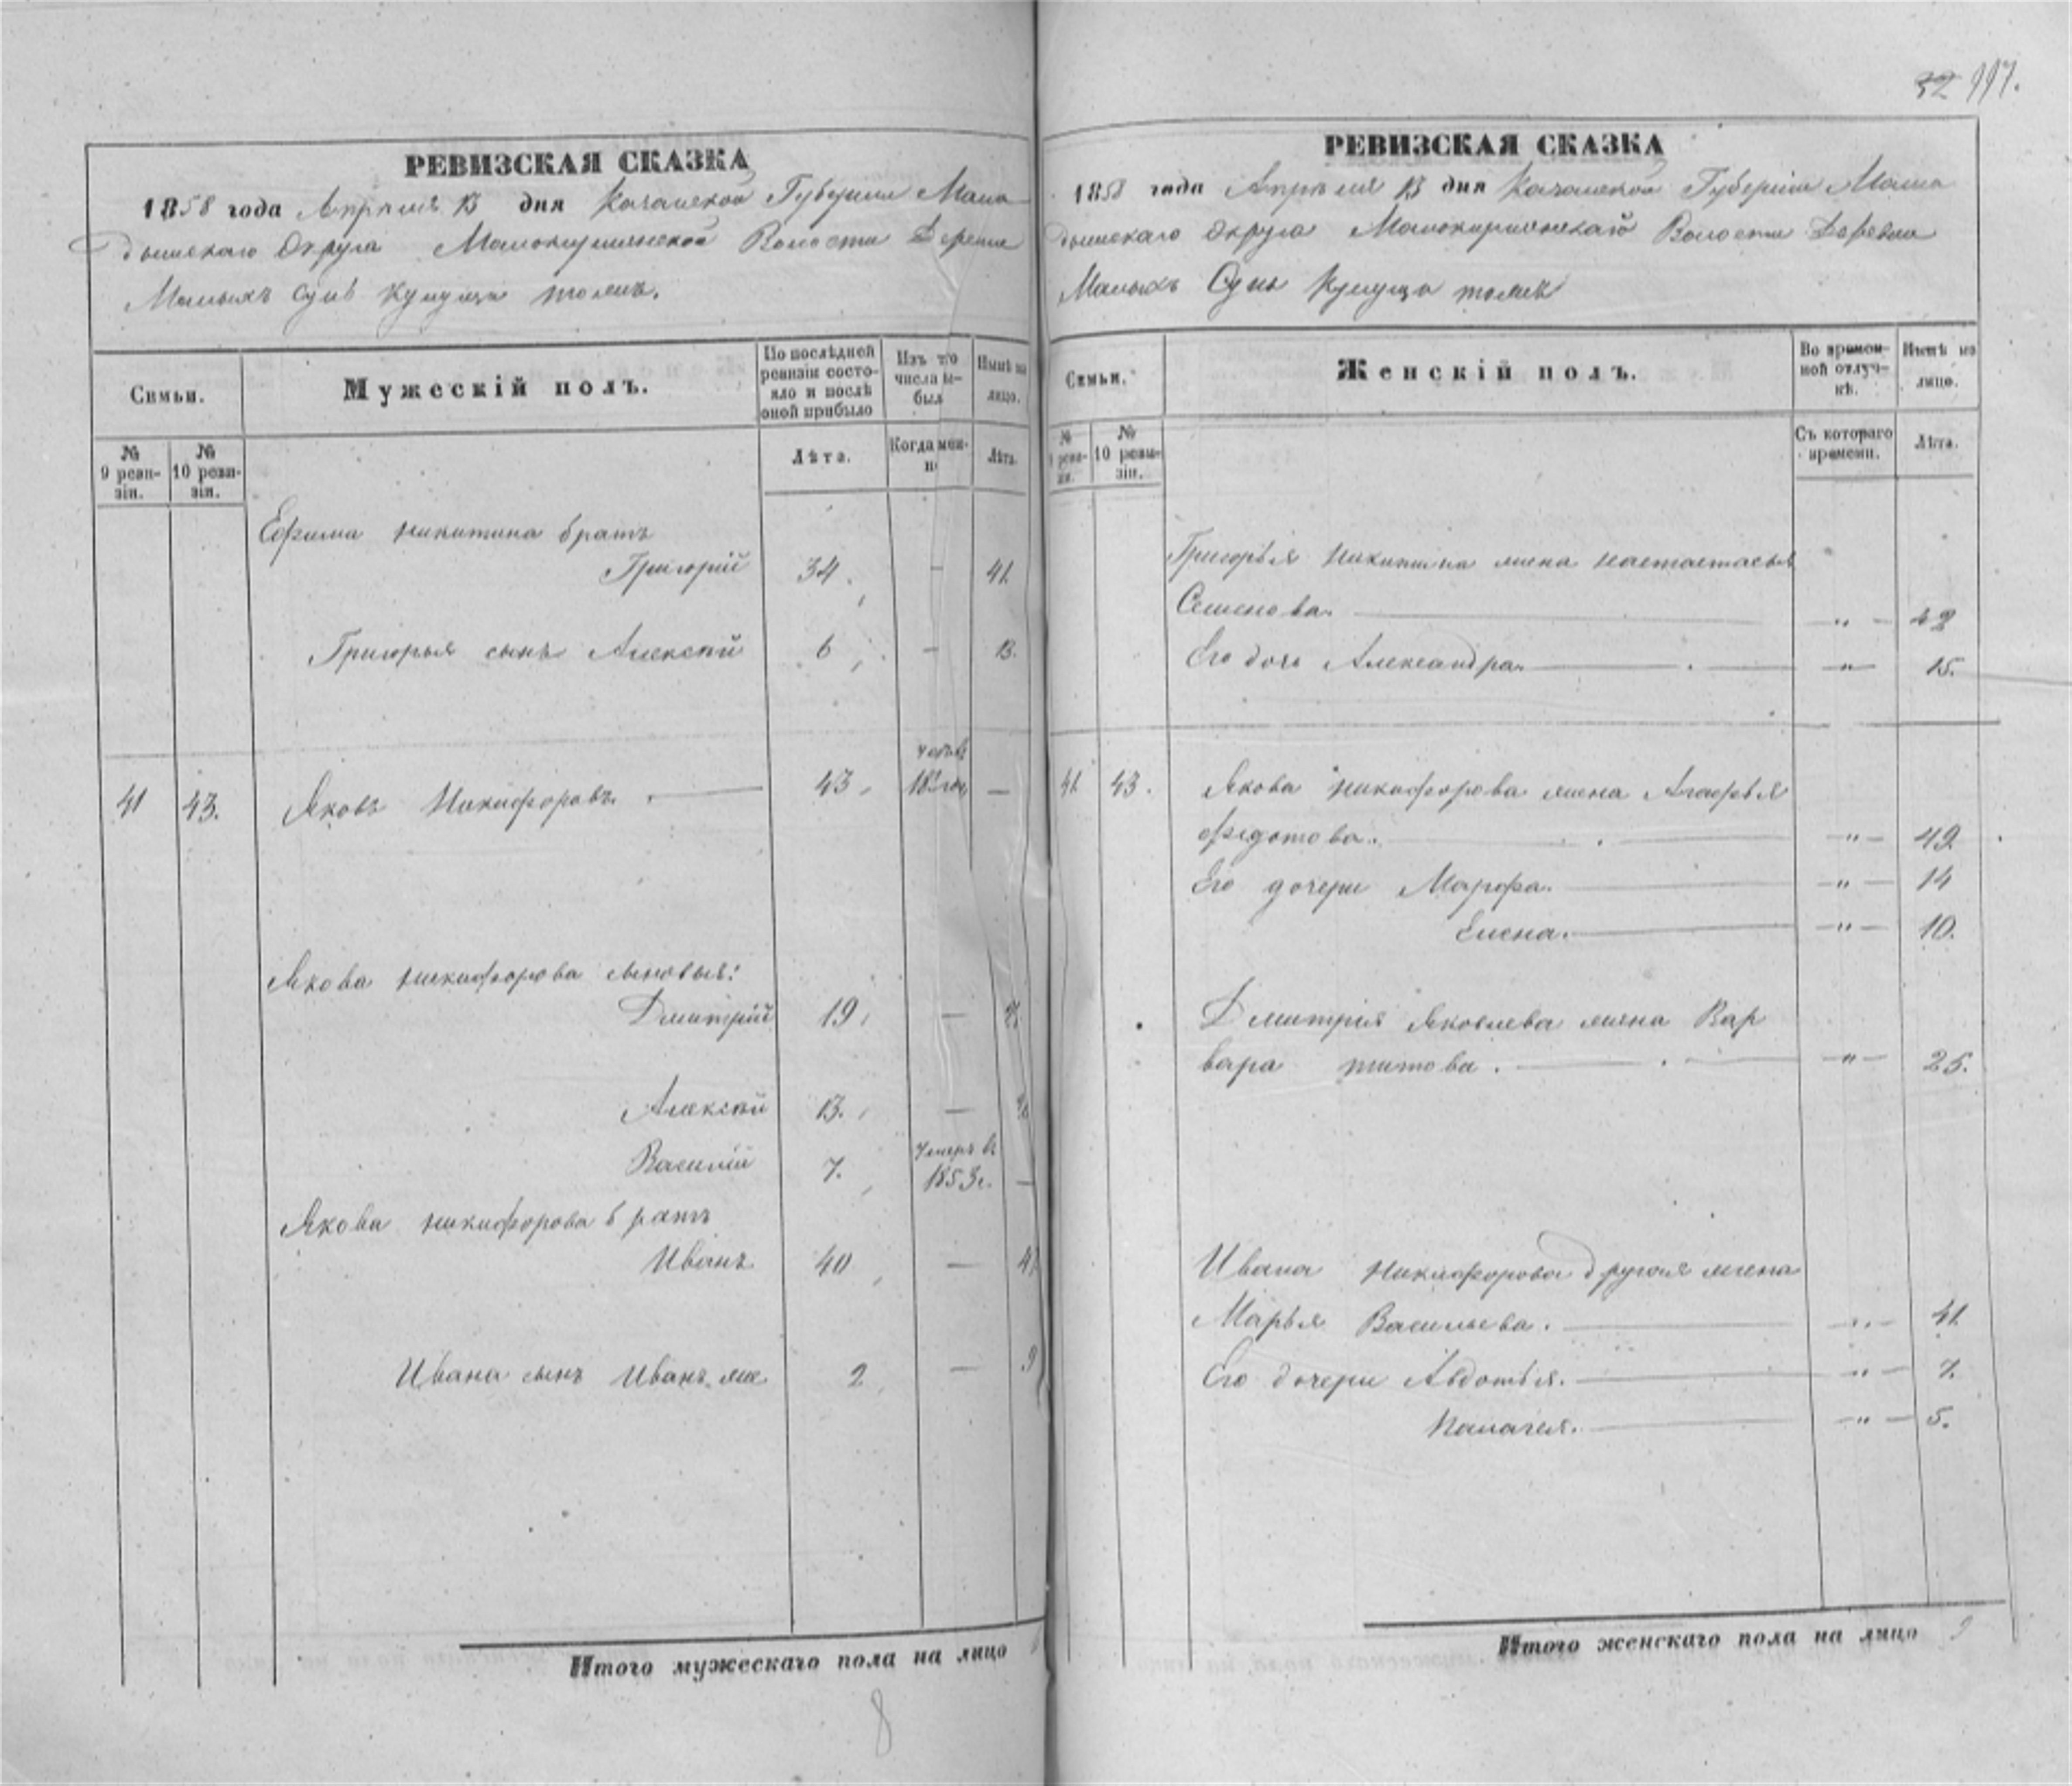 32 117.
РЕВИЗСКАЯ СКАЗКА
1858 года Апреля 13 дня Казанской Губернии Мама
дышскаго Округа Малокирменской Волости Деревни
Малыхъ Сунь
Семьи.
Мужескій полъ.
По послѣдней ревизіи состояло и послѣ оной прибыло
Изъ того числа выбыл
Нынѣ на лицо.
№ 9 ревизіи.
№ 10 ревизіи.
Лѣта.
Когда имен-
Лѣта.
Ефима Никитина братъ
Григорій 34. — 41.
Григорья сынъ Алексѣй 6 — 13.
41 43. Яковъ Никифоровъ. — 43 —
Якова Никифорова сыновья:
Дмитрій 19 —
Алексѣй 13. —
Василій 7. Умеръ въ 1853 г. —
Якова Никифорова братъ
Иванъ 40 —
Ивана сынъ Иванъ же 2 — 9
Итого мужескаго пола на лицо
8
РЕВИЗСКАЯ СКАЗКА
1858 года Апреля 13 дня Казанской Губерніи Мама
дышскаго Округа Малокирменскаго Волости Деревни
Малыхъ Сунь
Семьи.
Женскій полъ.
Во времен-ной отлуч-кѣ.
Нынѣ на лицо.
№ ревизіи.
№ 10 ревизіи.
Съ котораго времени.
Лѣта.
Григорья Никитина жена Настастасья
Семенова. — " — 42
Его дочь Александра. — " — 15.
41. 43. Якова Никифорова жена Агафья
Федотова. — " — 49.
Его дочери Марфа. — " — 14
Елена. — " — 10.
Дмитрія Яковлева жена Вар
вара Титова. — " — 25.
Ивана Никифорова другая жена
Марья Васильева. — " — 41.
Его дочери Авдотья. — " — 7.
Палагея. — " — 5.
Итого женскаго пола на лицо 9